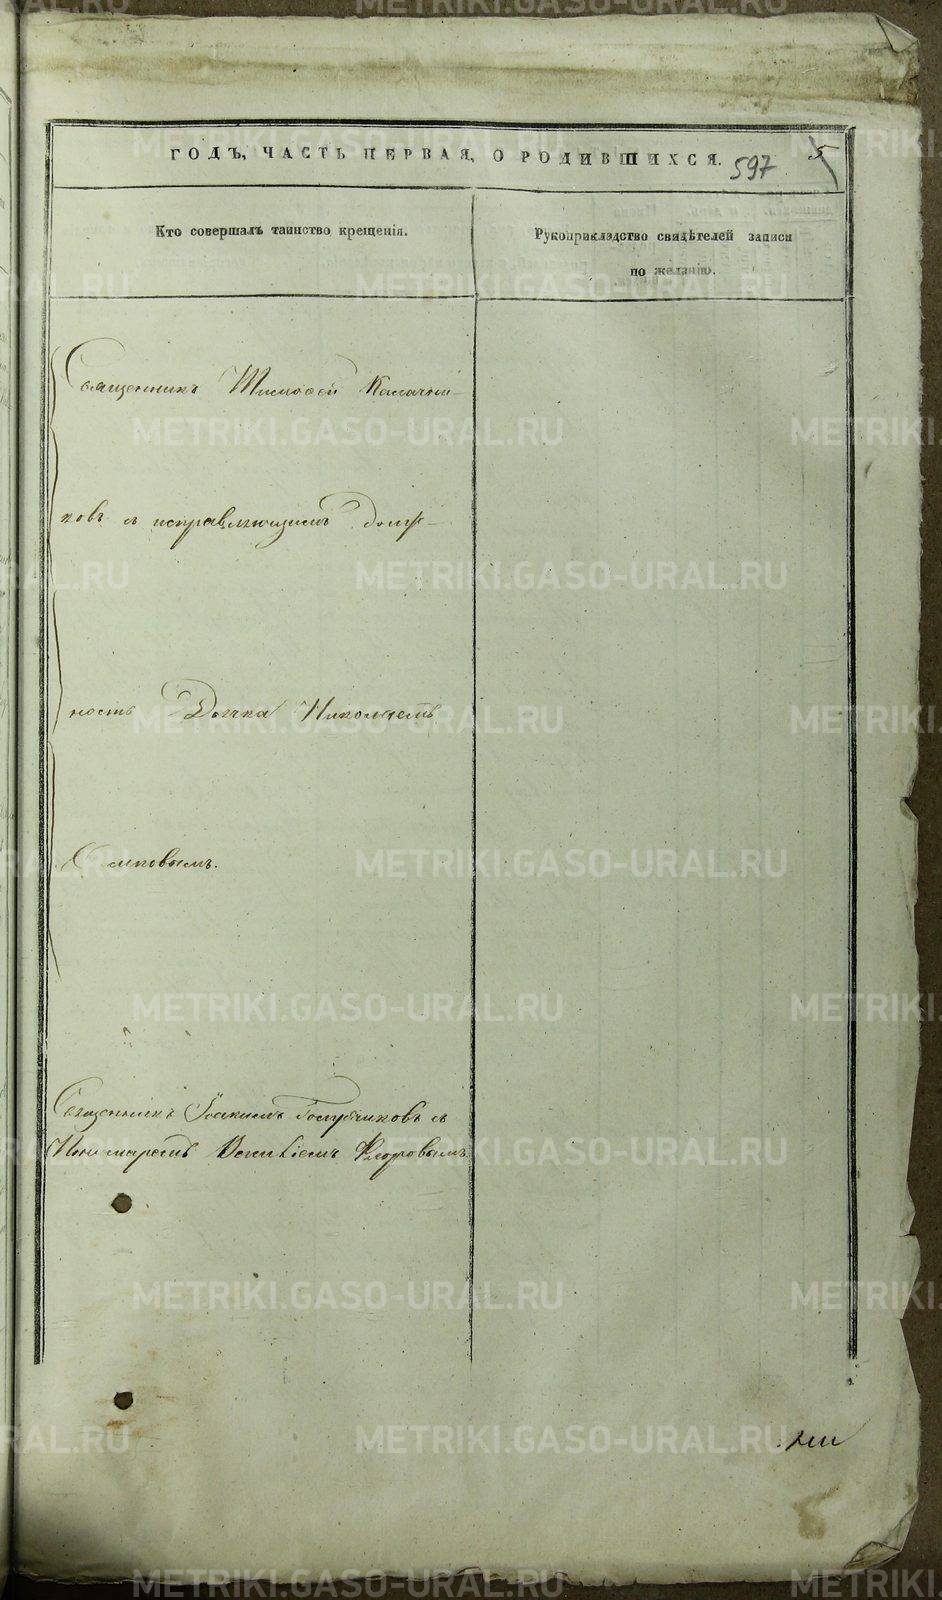 ГОДЪ, ЧАСТЬ ПЕРВАЯ, О РОДИВШИХСЯ.
597
5
Кто совершалъ таинство крещенія.
Рукоприкладство свидѣтелей записи
по желанію.
Священникъ Тимофей Калачни-
ковъ съ исправляющимъ долж-
ность Дьячка Николаемъ
Священникъ Іоакимъ съ
Пономаремъ Василіемъ Флоровымъ
METRIKI.GASO-URAL.RU